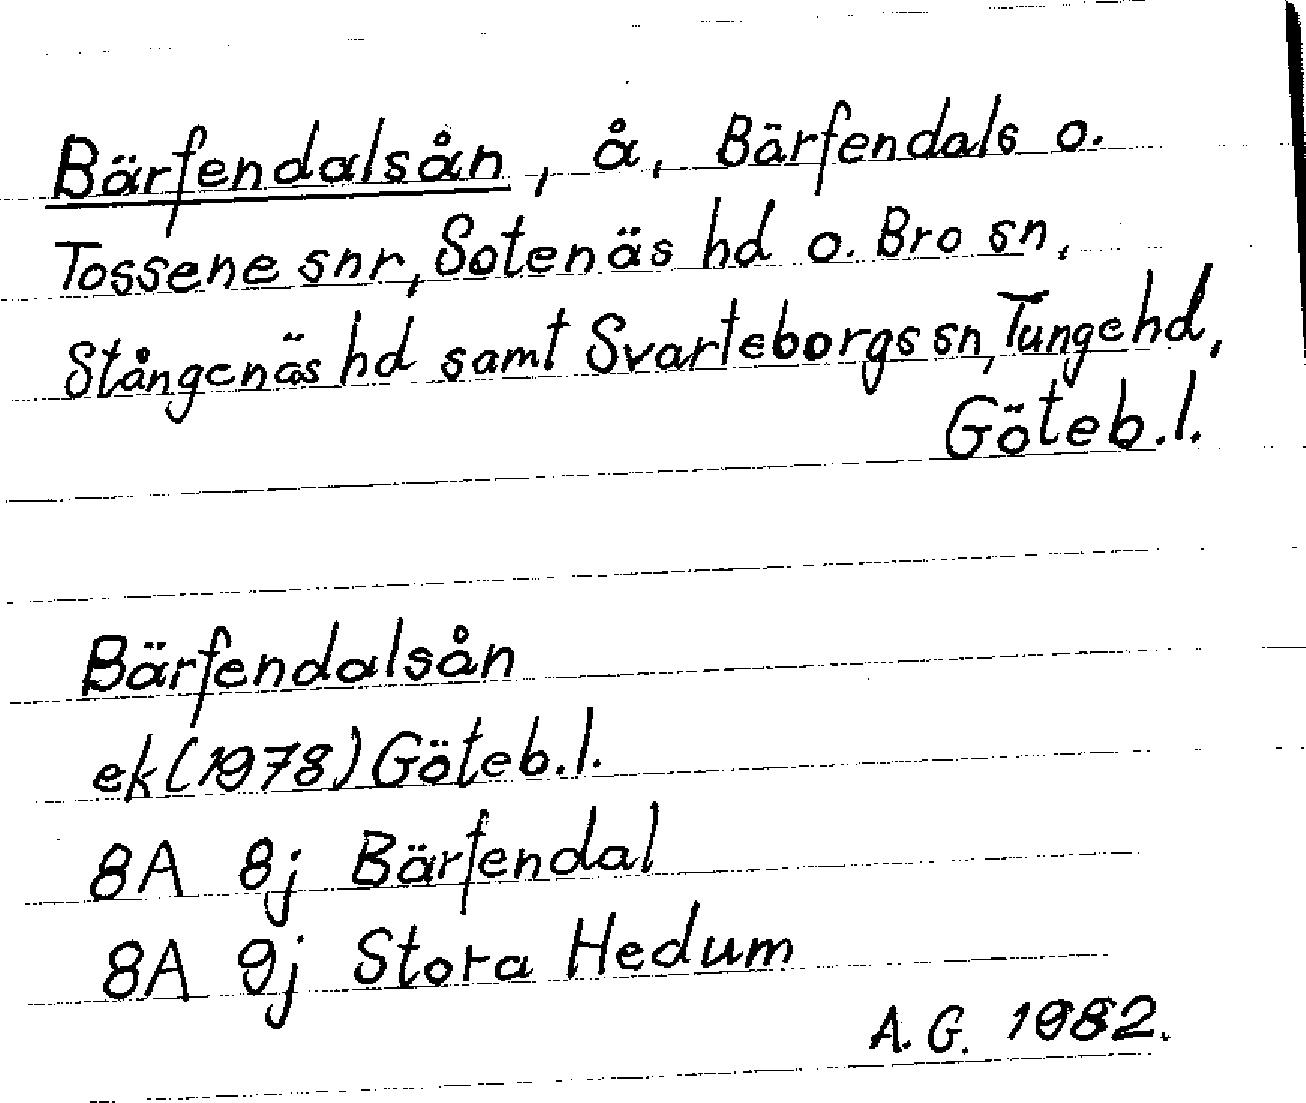 Bärfendalsån, å, Bärfendals o.
Tossene snr, Sotenäs hd o. Bro sn,
Stångenäs hd samt Svarteborgs sn, Tunge hd,
Göteb.l.
Bärfendalsån
ek (1978) Göteb.l.
8A 8j Bärfendal
8A 9j Stora Hedum
A.G. 1982.